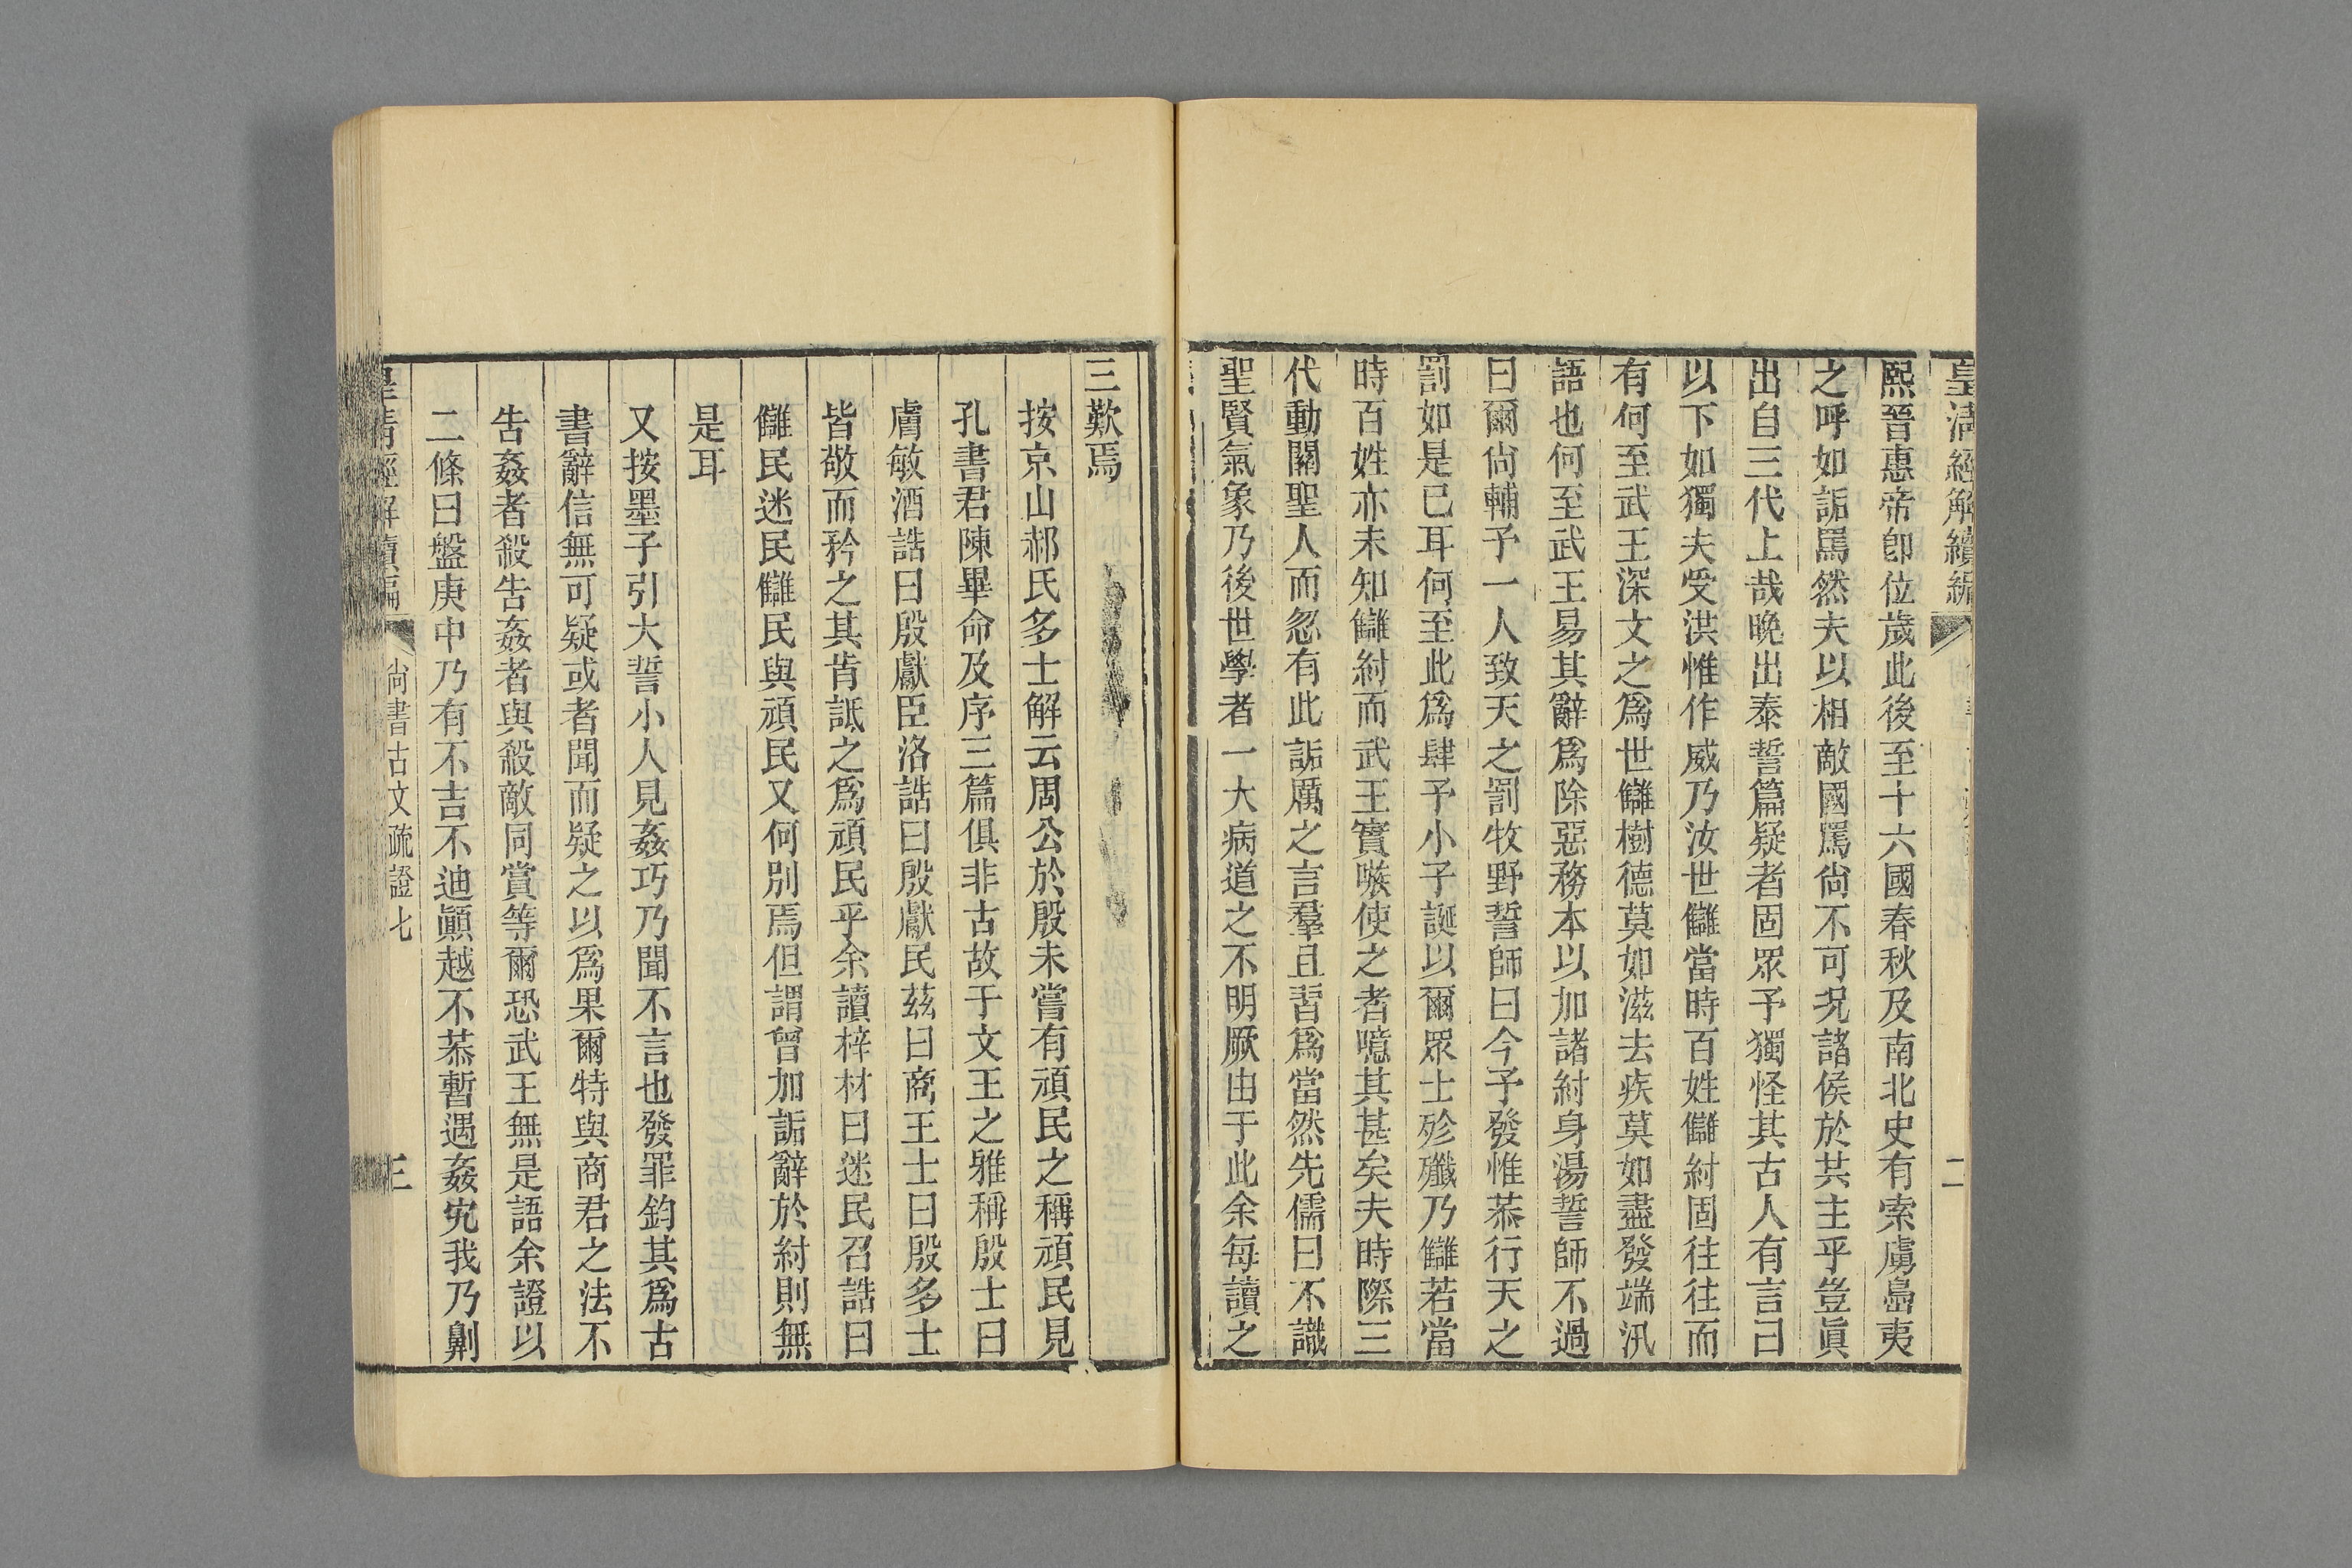 皇清經解續編
二
熙晉惠帝卽位歲此後至十六國春秋及南北史有索虜島夷
之呼如詬罵然夫以相敵國罵尙不可況諸侯於共主乎豈眞
出自三代上哉晚出泰誓篇疑者固眾予獨怪其古人有言曰
以下如獨夫受洪惟作威乃汝世讎當時百姓讎紂固往往而
有何至武王深文之爲世讎樹德莫如滋去疾莫如盡發端汎
語也何至武王易其辭爲除惡務本以加諸紂身湯誓師不過
曰爾尙輔予一人致天之罰牧野誓師曰今予發惟恭行天之
罰如是已耳何至此爲肆予小子誕以爾眾士殄殲乃讎若當
時百姓亦未知讎紂而武王實嗾使之者噫其甚矣夫時際三
代動關聖人而忽有此詬厲之言羣且習爲當然先儒曰不識
聖賢氣象乃後世學者一大病道之不明厥由于此余每讀之
三歎焉
按京山郝氏多士解云周公於殷未嘗有頑民之稱頑民見
孔書君陳畢命及序三篇俱非古故于文王之雅稱殷士曰
膚敏酒誥曰殷獻臣洛誥曰殷獻民茲曰商王士曰殷多士
皆敬而矜之其肯詆之爲頑民乎余讀梓材曰迷民召誥曰
讎民迷民讎民與頑民又何別焉但謂曾加詬辭於紂則無
是耳
又按墨子引大誓小人見姦巧乃聞不言也發罪鈞其爲古
書辭信無可疑或者聞而疑之以爲果爾特與商君之法不
告姦者殺告姦者與殺敵同賞等爾恐武王無是語余證以
二條曰盤庚中乃有不吉不迪顚越不恭暫遇姦宄我乃劓
皇清經解續編
尙書古文疏證七
三